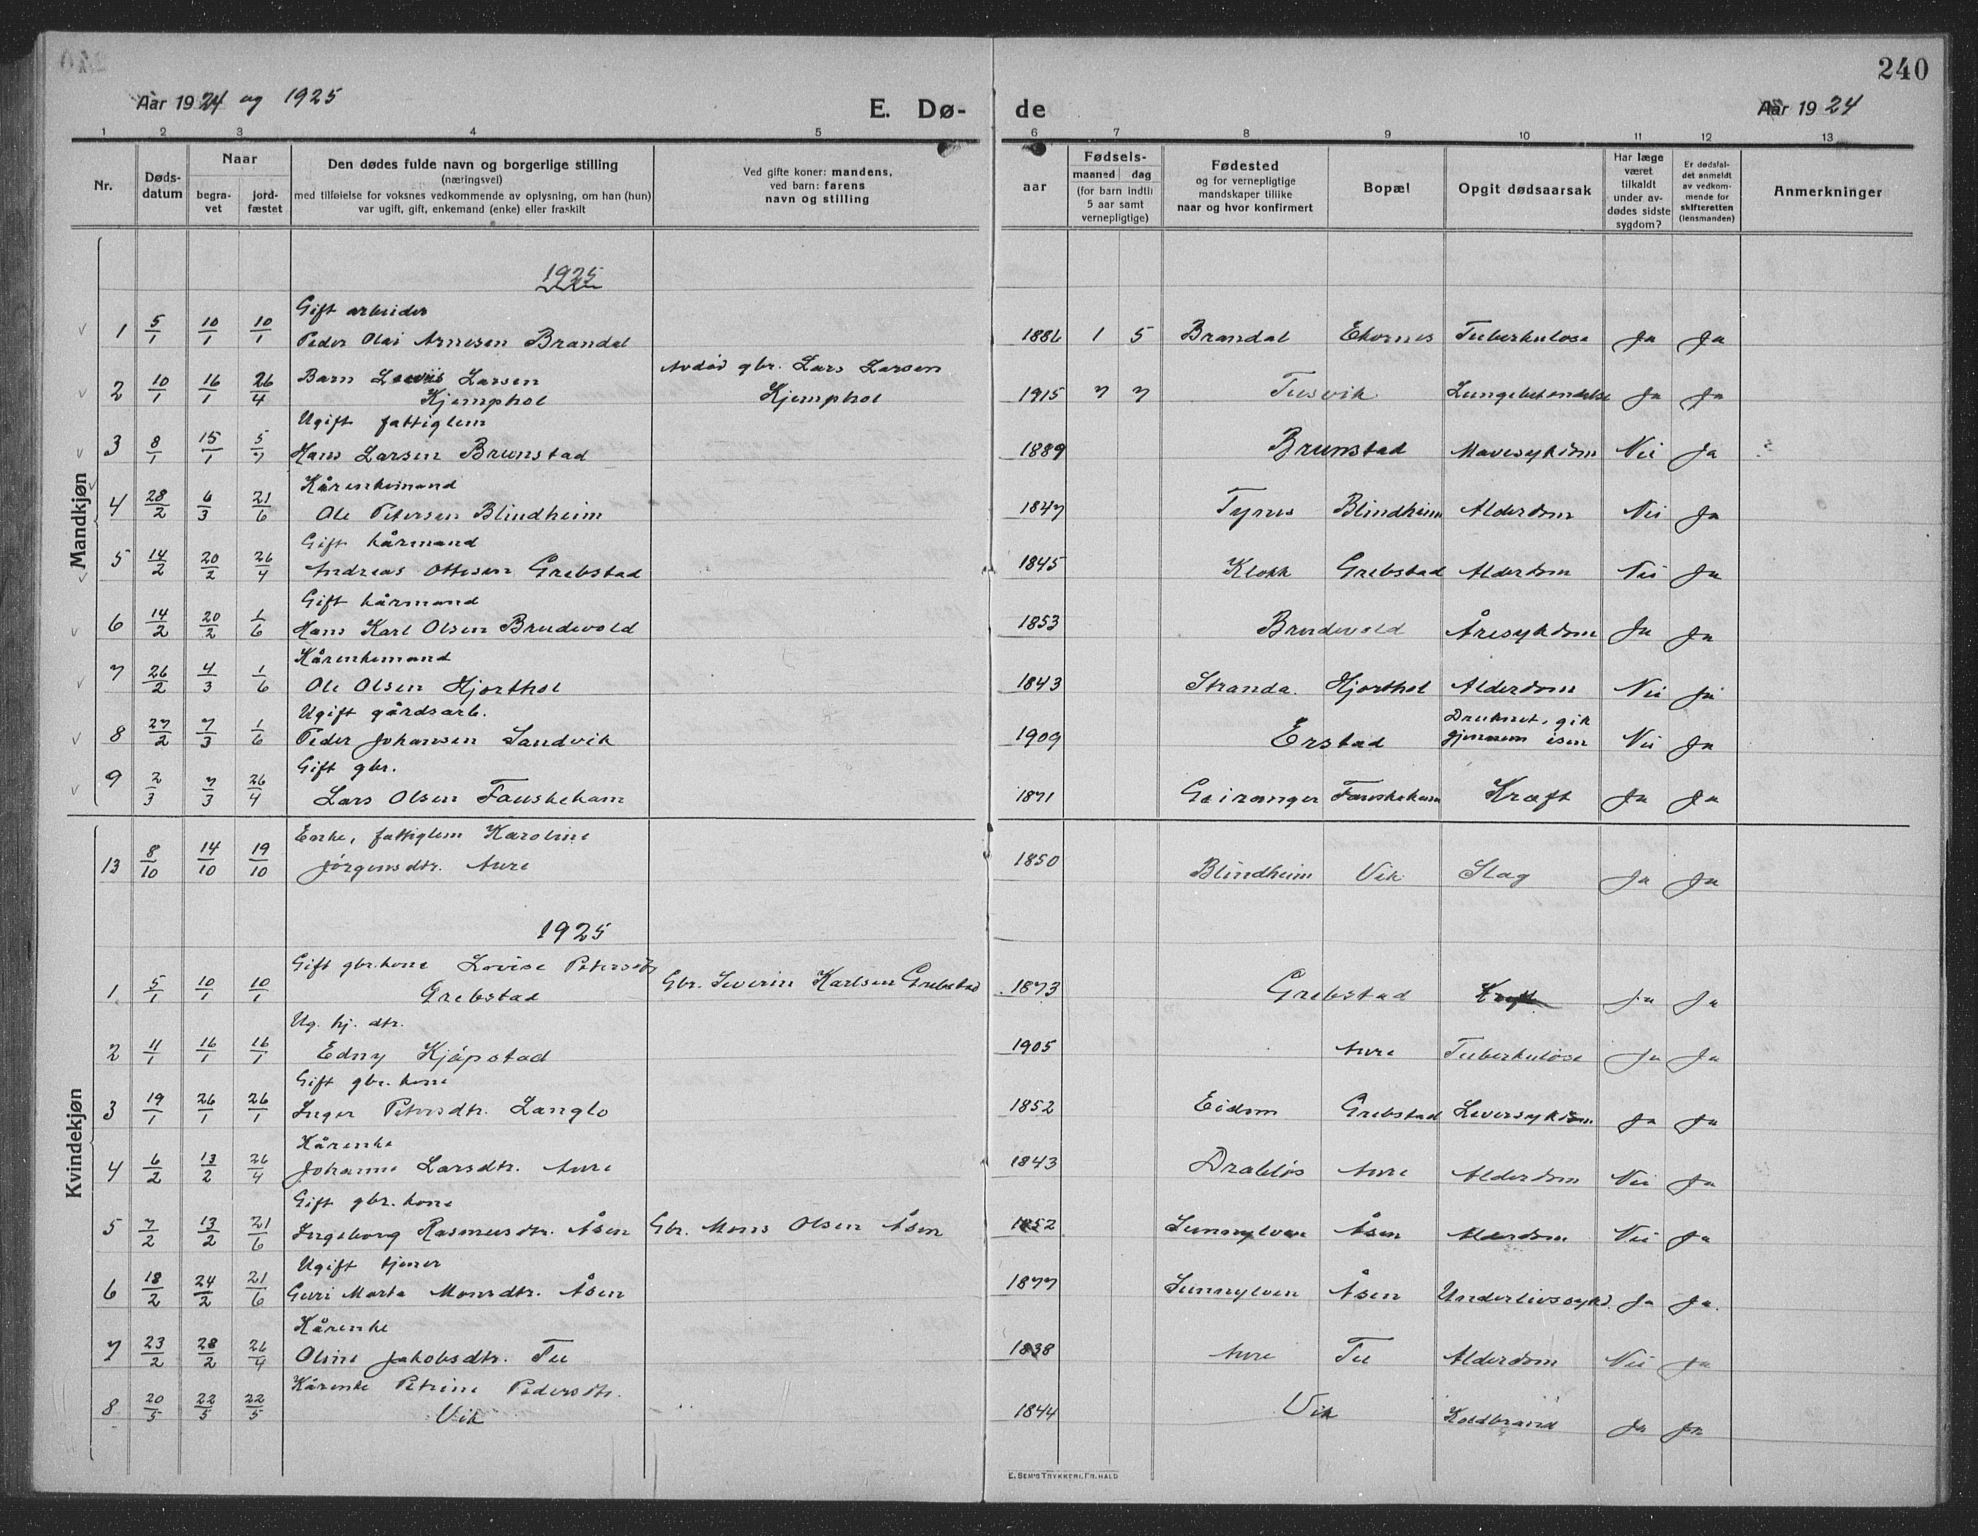 240
Aar 1924 og 1925 E. Dø- de Aar 1924
1 2 3 4 5 6 7 8 9 10 11 12 13
Nr. Døds-datum Naar begra-vet jord-fæstet Den dødes fulde navn og borgerlige stilling (næringsvei) med tilføielse for voksnes vedkommende av oplysning, om han (hun) var ugift, gift, enkemand (enke) eller fraskilt Ved gifte koner: mandens, ved barn: farens navn og stilling aar Fødsels- maaned dag (for barn indtil 5 aar samt vernepligtige) Fødested og for vernepligtige mandskaper tillike naar og hvor konfirmert Bopæl Opgit dødsaarsak Har læge været tilkaldt under av-dødes sidste sygdom? Er dødsfal-det anmeldt av vedkom-mende for skifteretten (lensmanden) Anmerkninger
Mandkjøn
1925
Gift arbeider
1 5/1 10/1 10/1 Peder Olai Arnesen Brandal 1886 1 5 Brandal Ekornes Tuberkulose Ja Ja
Barn Lewis Larsen Avdød gbr. Lars Larsen
2 10/1 16/1 26/4 Kjemphol Kjemphol 1915 7 7 Tusvik Lungebetendelse Ja Ja
Ugift fattiglem
3 8/1 15/1 5/7 Hans Larsen Brunstad 1889 Brunstad Mavesykdom Nei Ja
Kårenkemand
4 28/2 6/3 21/6 Ole Petersen Blindheim 1847 Tynes Blindheim Alderdom Nei Ja
Gift kårmand
5 14/2 20/2 26/4 Andreas Ottesen Grebstad 1845 Klokk Grebstad Alderdom Nei Ja
Gift kårmand
6 14/2 20/2 1/6 Hans Karl Olsen Brudevold 1853 Brudevold Åresykdom Ja Ja
Kårenkemand
7 26/2 4/3 1/6 Ole Olsen Hjorthol 1843 Stranda. Hjorthol Alderdom Nei Ja
Ugift gårdsarb. Druknet, gik
8 27/2 7/3 1/6 Peder Johansen Sandvik 1909 Erstad gjennem isen Nei Ja
Gift gbr.
9 2/3 7/3 26/4 Lars Olsen Fauskeham 1871 Geiranger Fauskeham Kræft Ja Ja
Kvindekjøn
Enke, fattiglem Karoline
13 8/10 14/10 19/10 Jørgensdtr. Aure 1850 Blindheim Vik Slag Ja Ja
1925
Gift gbr. kone Lovise Petersdtr.
1 5/1 10/1 10/1 Grebstad Gbr. Severin Karlsen Grebstad 1873 Grebstad Kræft Ja Ja
Ug. hj. dtr.
2 11/1 16/1 16/1 Edny Kjøpstad 1905 Aure Tuberkuløse Ja Ja
Gift gbr. kone
3 19/1 26/1 26/1 Inger Petersdtr. Langlo 1852 Eidem Grebstad Leversykdom Ja Ja
Kårenke
4 6/2 13/2 26/4 Johanne Larsdtr. Aure 1843 Drabløs Aure Alderdom Nei Ja
Gift gbr. kone
5 7/2 13/2 21/6 Ingeborg Rasmusdtr. Åsen Gbr. Mons Olsen Åsen 1852 Sunnylven Åsen Alderdom Nei Ja
Ugift tjener
6 18/2 24/2 21/6 Guri Marta Monsdtr. Åsen 1877 Sunnylven Åsen Underlivssykd. Ja Ja.
Kårenke
7 23/2 28/2 26/4 Oline Jakobsdtr. Tu 1838 Aure Tu Alderdom Nei Ja
Kårenke Petrine Pedersdtr.
8 20/5 22/5 22/5 Vik 1844 Vik Koldbrand Ja Ja
E. SEM'S TRYKKERI, FR.HALD